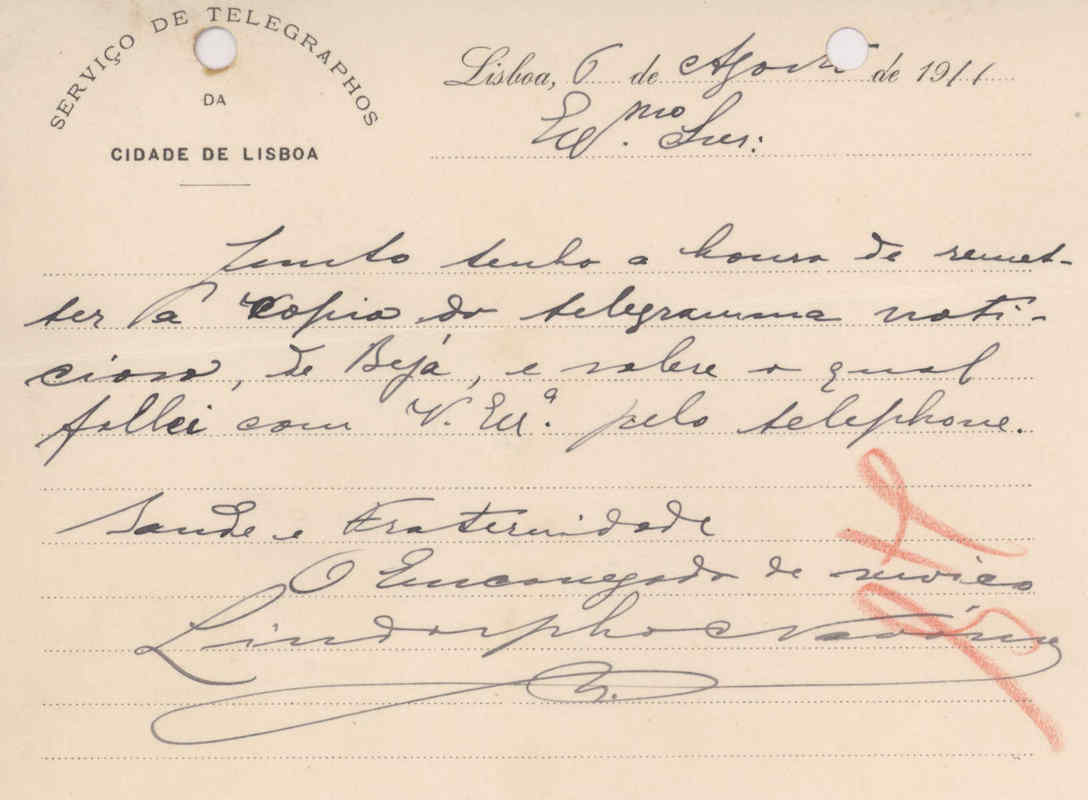 SERVIÇO DE TELEGRAPHOS
DA
CIDADE DE LISBOA
Lisboa, 6 de Agosto de 1911
Exmo Snr:
Junto tenho a honra de remet-
ter a copia do telegramma noti-
cioso, de Bejá, e sobre o qual
fallei com V. Exª. pelo telephone.
Saude e Fraternidade
O Encarregado de serviço
Lindorpho